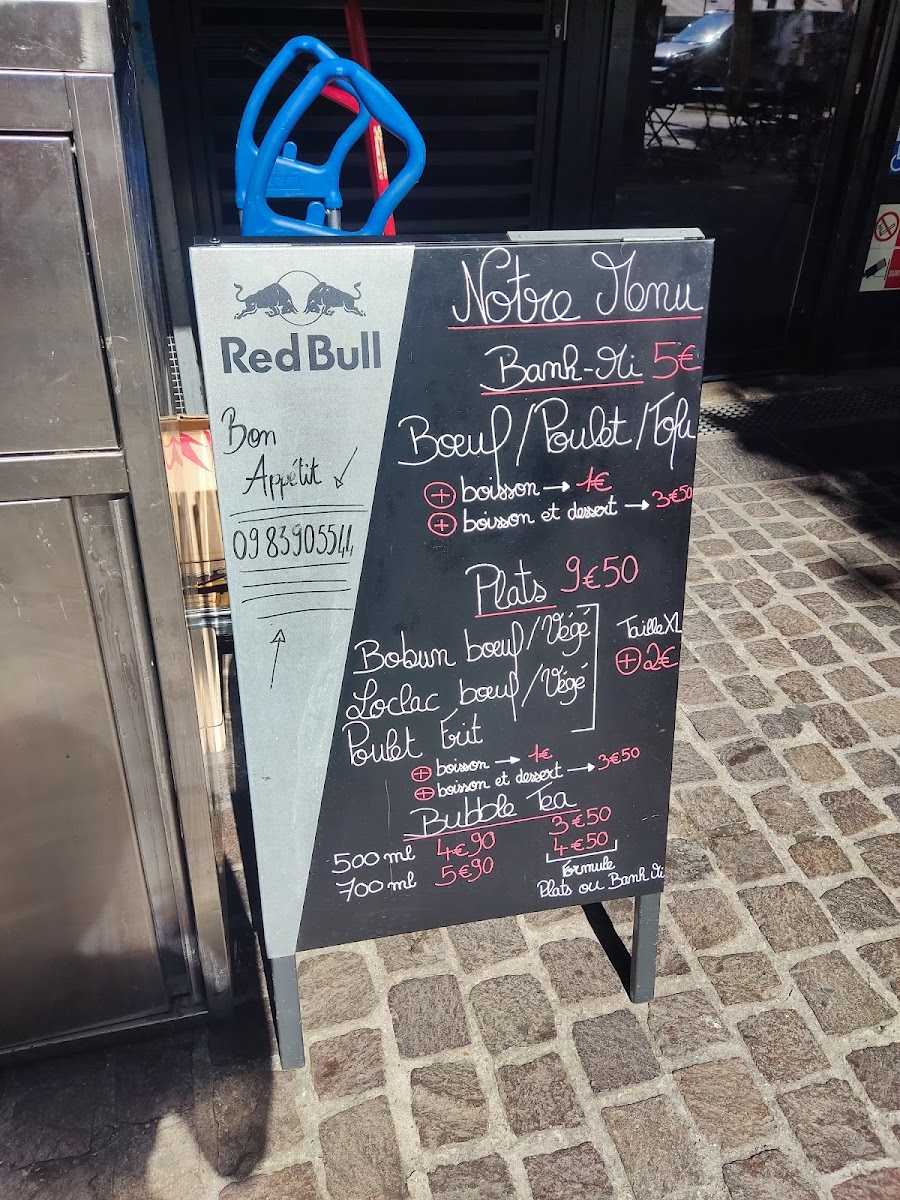 Red Bull
Bon
Appétit
09 83905544
Notre Menu
Banh-Mi 5€
Boeuf/Poulet/Tofu
+ boisson → 1€
+ boisson et dessert → 3€50
Plats 9€50
Bobun boeuf/Végé
Loclac boeuf/Végé
Poulet Frit
Taille XL
+ 2€
+ boisson → 1€
+ boisson et dessert → 3€50
Bubble Tea
500 ml 4€90 3€50
700 ml 5€90 4€50
Formule
Plats ou Banh Mi